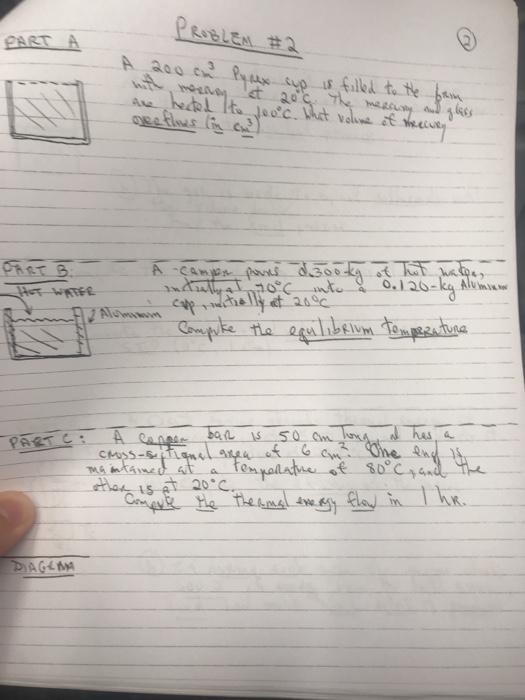 PROBLEM #2
2
PART A
A 200 cm³ Pyrex cup is filled to the brim
with mercury at 20°C. The mercury and glass
are heated to 100°C. What volume of mercury
overflows (in cm³)
PART B:
A camper pours 0.300-kg of hot water,
HOT WATER
initially at 70°C into a 0.120-kg Aluminum
cup, initially at 20°C
Aluminum
Compute the equlibrium temperature
PART C: A Copper bar is 50 cm long, d has a
cross-sectional area of 6 cm². One end is
maintained at a temperature of 80°C, and the
other is at 20°C.
Compute the thermal energy flow in 1 hr.
DIAGRAM